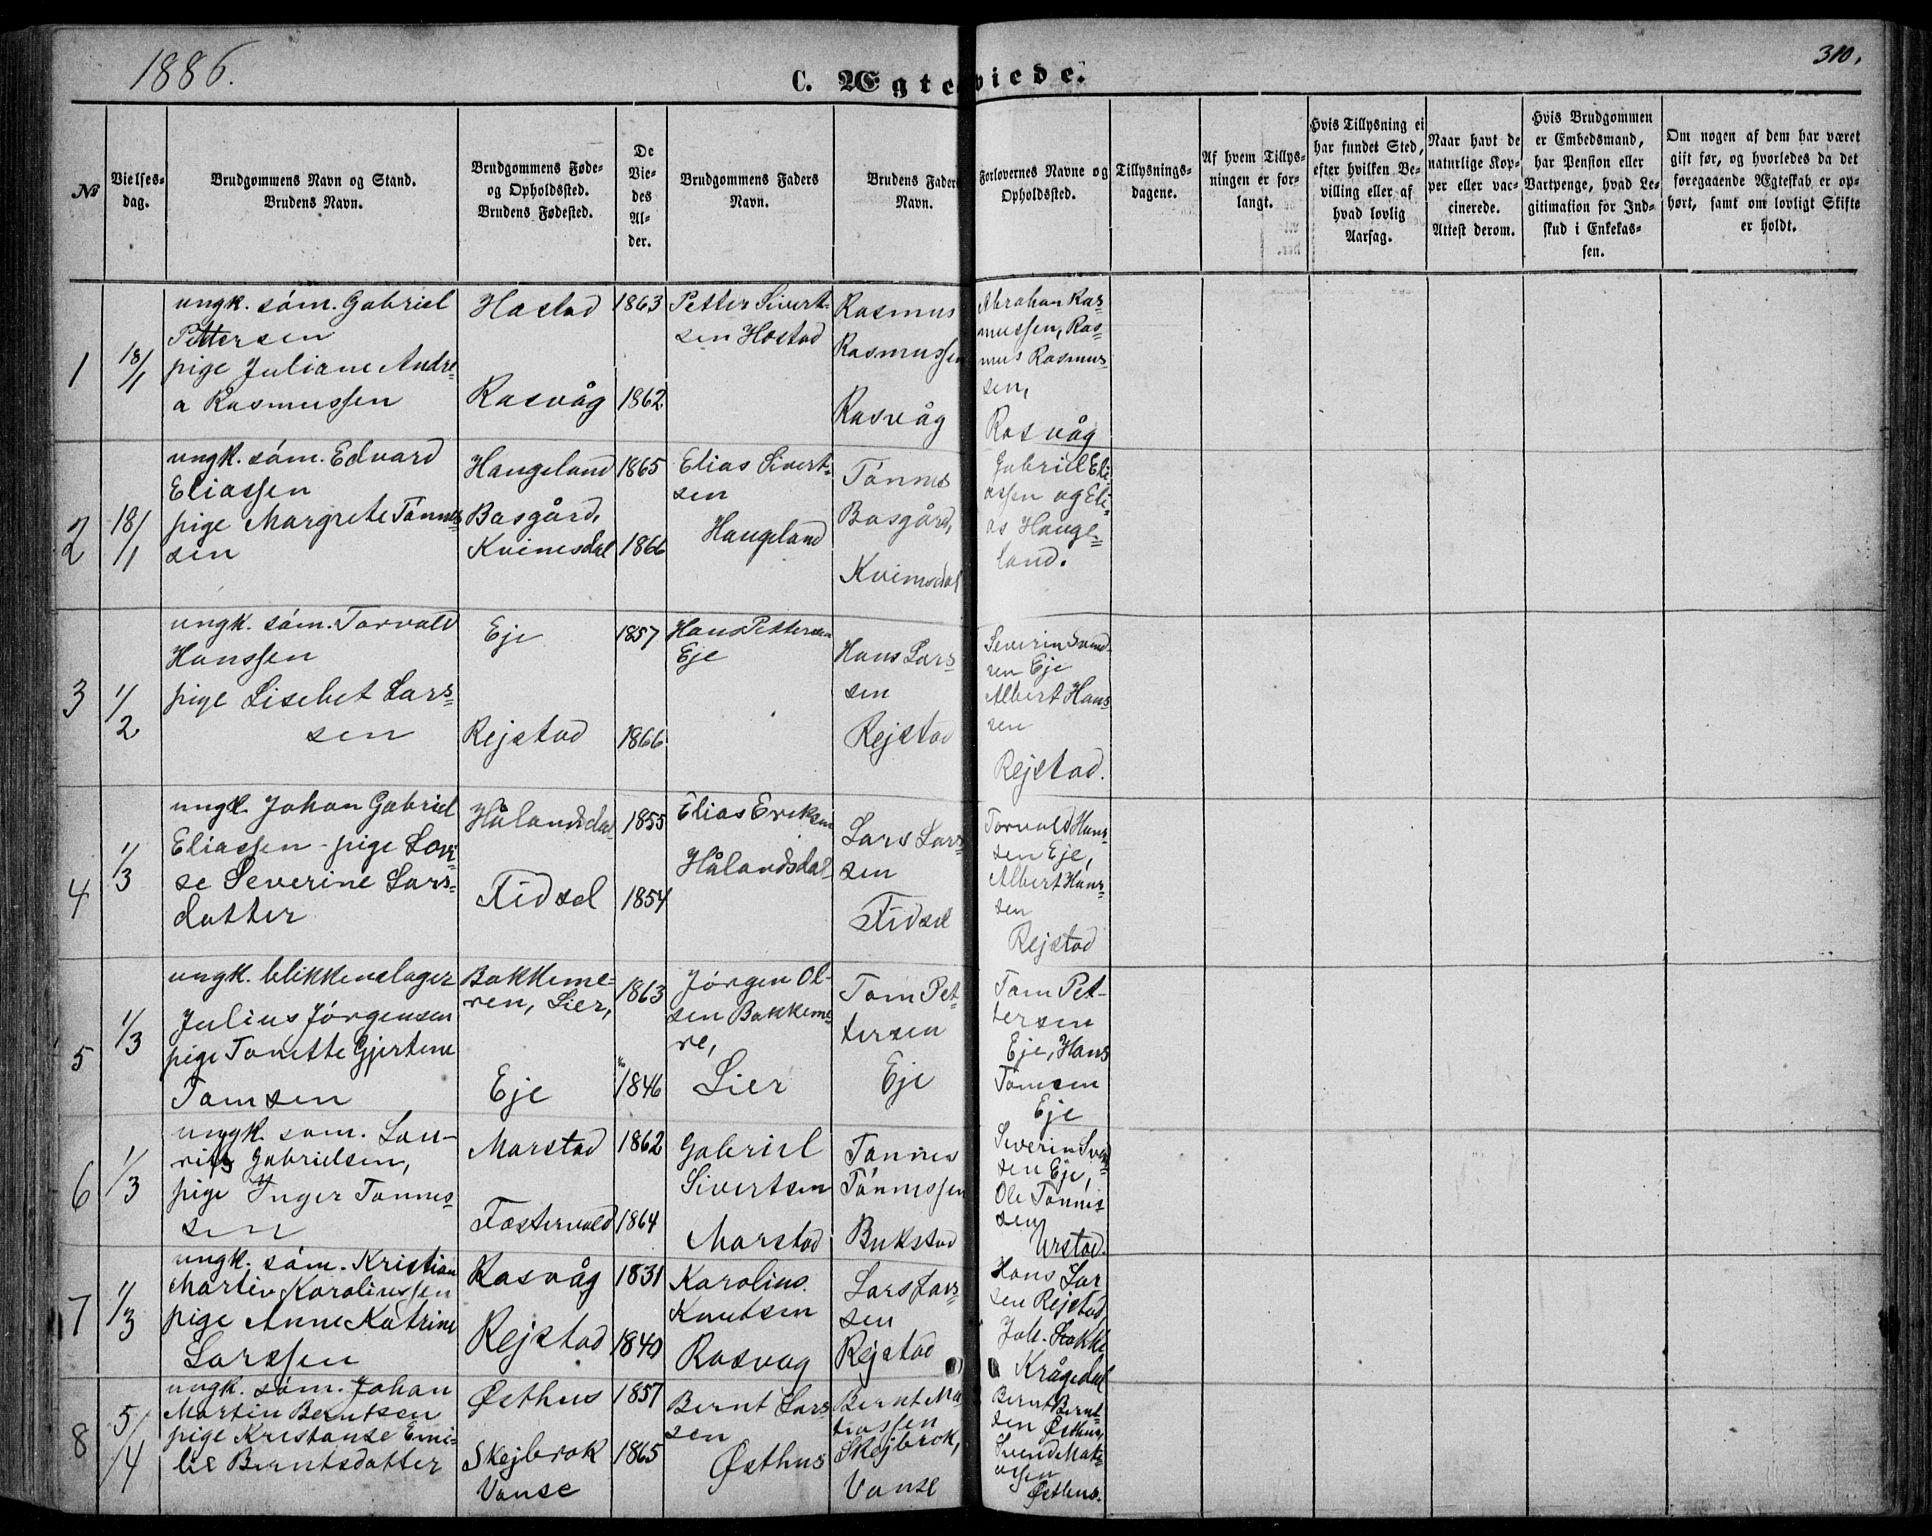 1886.
310.
C. Ægteviede.
No
Vielses-
dag.
Brudgommens Navn og Stand.
Brudens Navn.
Brudgommens Føde-
og Opholdssted.
Brudens Fødested.
De
Vie-
des
Al-
der.
Brudgommens Faders
Navn.
Brudens Faders
Navn.
Forlovernes Navne og
Opholdssted.
Tillysnings-
dagene.
Af hvem Tillys-
ningen er for-
langt.
Hvis Tillysning ei
har fundet Sted,
efter hvilken Be-
villing eller af
hvad lovlig
Aarsag.
Naar havt de
naturlige Kop-
per eller vac-
cinerede.
Attest derom.
Hvis Brudgommen
er Embedsmand,
har Pension eller
Vartpenge, hvad Le-
gitimation for Ind-
skud i Enkekas-
sen.
Om nogen af dem har været
gift før, og hvorledes da det
foregaaende Ægteskab er op-
hørt, samt om lovligt Skifte
er holdt.
1
18/1
ungk. søm. Gabriel
Pettersen
pige Juliane Andre-
a Rasmussen
Hastad
Rasvåg
1863
1862.
Petter Sivert-
sen Hastad
Rasmus
Rasmussen
Rasvåg
Abraham Ras-
mussen, Ras-
mus Rasmus-
sen,
Rasvåg
2
18/1
ungk. søm. Edvard
Eliassen
pige Margrete Tønnes-
sen
Haugeland
Basgård,
Kvinesdal
1865
1866
Elias Sivert-
sen
Haugeland
Tønnes
Basgård,
Kvinesdal
Gabriel Eli-
assen og Eli-
as Hauge-
land.
3
1/2
ungk. søm. Torvald
Hanssen
pige Lisebet Lars-
sen
Eje
Rejstad
1857
1866
Hans Pettersen
Eje
Hans Lars-
sen
Rejstad
Severin Svend-
sen Eje
Albert Hans-
sen
Rejstad.
4
1/3
ungk. Johan Gabriel
Eliassen - pige Lovi-
se Severine Lars-
datter
Hålandsdal
Fidsel
1855
1854
Elias Eriksen
Hålandsdal
Lars Lars-
sen
Fidsel
Torvald Hans-
sen Eje,
Albert Hans-
sen
Rejstad
5
1/3
ungk. blikkenslager
Julius Jørgensen
pige Tonette Gjertine
Tomsen
Bakkeme-
ren, Lier,
Eje
1863
1846
Jørgen Ol-
sen Bakkeme-
re,
Lier
Tom Pet-
tersen
Eje
Tom Pet-
tersen
Eje, Hans
Tomsen
Eje
6
1/3
ungk. søm. Lau-
rits Gabrielsen,
pige Inger Tønnes-
sen
Marstad
Fastervold
1862
1864
Gabriel
Sivertsen
Marstad
Tønnes
Tønnessen
Bukstad
Severin Svend-
sen Eje,
Ole Tønnes-
sen
Urstad.
7
1/3
ungk. søm. Kristian
Martin Karoliussen
pige Anne Katrine
Larssen
Rasvåg
Rejstad
1831
1840
Karolius
Knutsen
Rasvag
Lars Lars-
sen
Rejstad
Hans Lar-
sen Rejstad,
Joh. Stakke
Krågedal
8
5/4
ungk. søm. Johan
Martin Berntsen
pige Kristanse Emi-
lie Berntsdatter
Østhus
Skejbrok
Vanse
1857
1865
Bernt Lars-
sen
Østhus
Bernt Ma-
tiassen
Skejbrok,
Vanse
Bernt Bernt-
sen Østhus,
Svend Mati-
assen
Østhus.